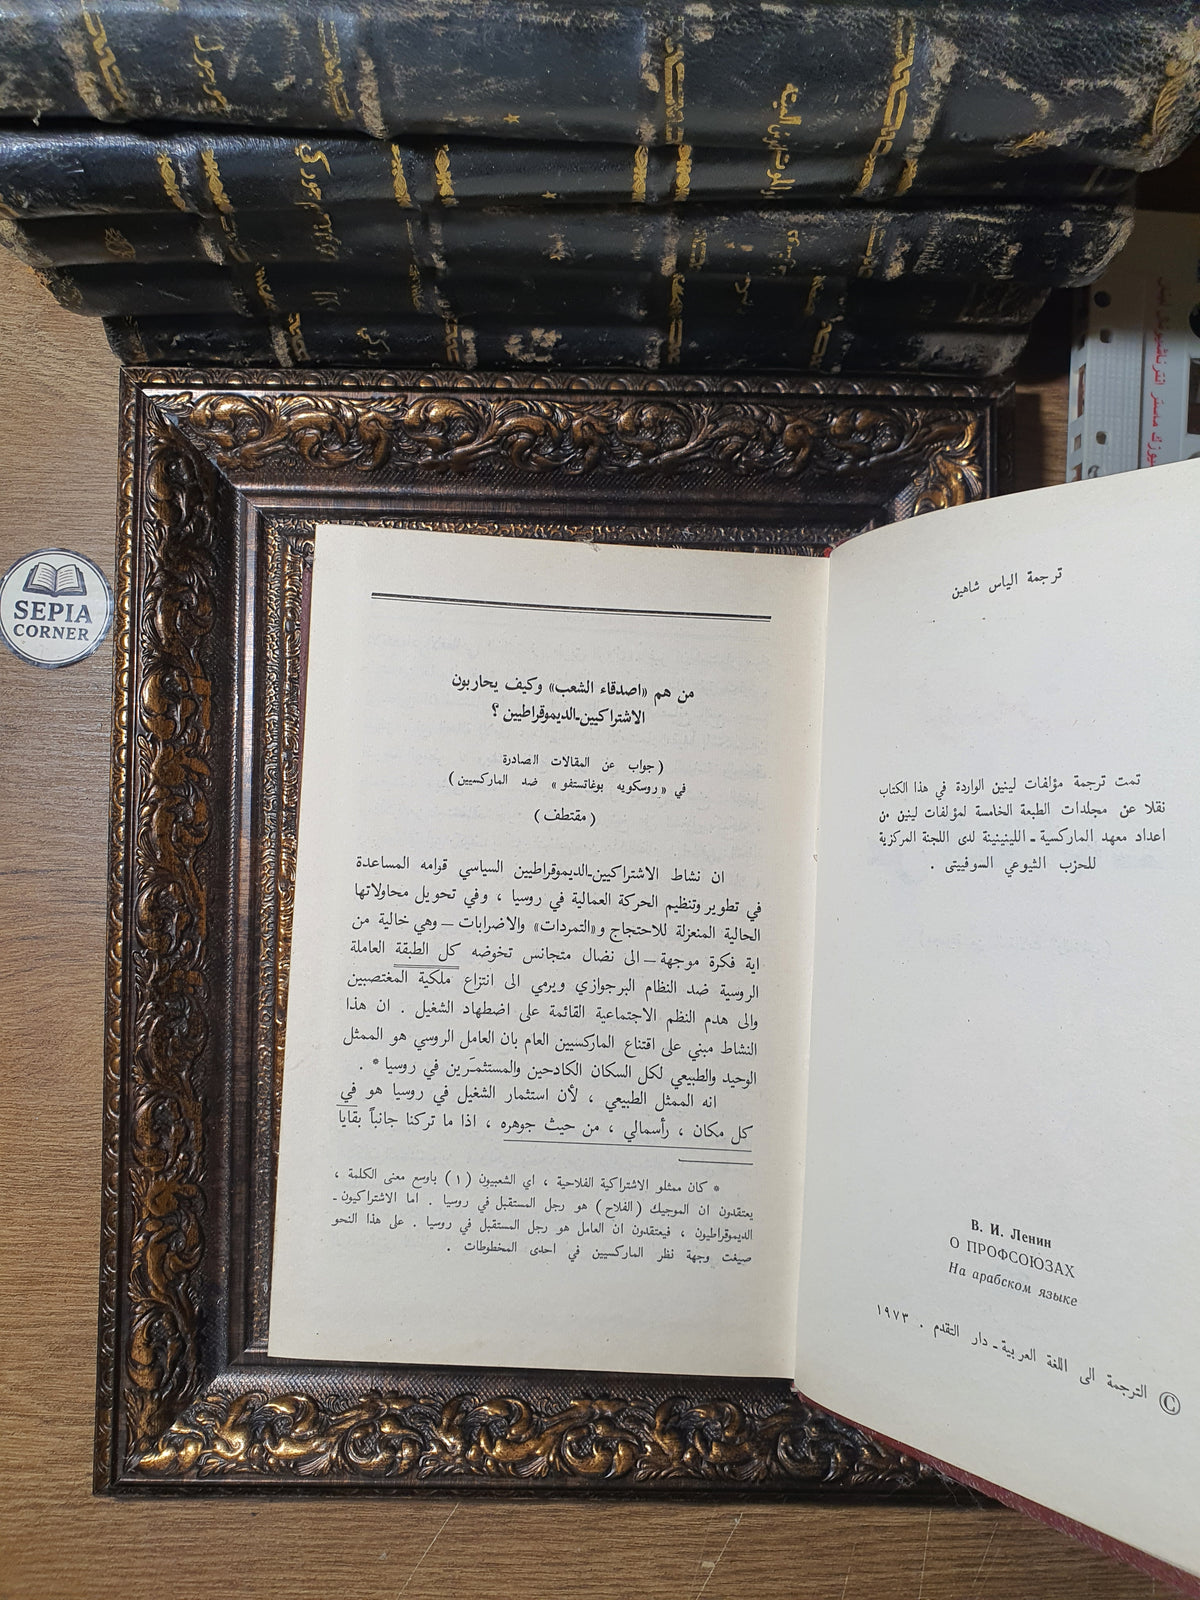 SEPIA
CORNER
ترجمة الياس شاهين
تمت ترجمة مؤلفات لينين الواردة في هذا الكتاب
نقلا عن مجلدات الطبعة الخامسة لمؤلفات لينين من
اعداد معهد الماركسية ـ اللينينية لدى اللجنة المركزية
للحزب الشيوعي السوفييتى .
В. И. Ленин
О ПРОФСОЮЗАХ
На арабском языке
© الترجمة الى اللغة العربية ـ دار التقدم . ١٩٧٣
من هم «اصدقاء الشعب» وكيف يحاربون
الاشتراكيين-الديموقراطيين ؟
( جواب عن المقالات الصادرة
في « روسكويه بوغاتستفو » ضد الماركسيين )
( مقتطف )
ان نشاط الاشتراكيين-الديموقراطيين السياسي قوامه المساعدة
في تطوير وتنظيم الحركة العمالية في روسيا ، وفي تحويل محاولاتها
الحالية المنعزلة للاحتجاج و«التمردات» والاضرابات ــ وهي خالية من
اية فكرة موجهة ــ الى نضال متجانس تخوضه كل الطبقة العاملة
الروسية ضد النظام البرجوازي ويرمي الى انتزاع ملكية المغتصبين
والى هدم النظم الاجتماعية القائمة على اضطهاد الشغيل . ان هذا
النشاط مبني على اقتناع الماركسيين العام بان العامل الروسي هو الممثل
الوحيد والطبيعي لكل السكان الكادحين والمستثمَرين في روسيا * .
انه الممثل الطبيعي ، لأن استثمار الشغيل في روسيا هو في
كل مكان ، رأسمالي ، من حيث جوهره ، اذا ما تركنا جانباً بقايا
* كان ممثلو الاشتراكية الفلاحية ، اي الشعبيون ( ١ ) باوسع معنى الكلمة ،
يعتقدون ان الموجيك ( الفلاح ) هو رجل المستقبل في روسيا . اما الاشتراكيون ـ
الديموقراطيون ، فيعتقدون ان العامل هو رجل المستقبل في روسيا . على هذا النحو
صيغت وجهة نظر الماركسيين في احدى المخطوطات .